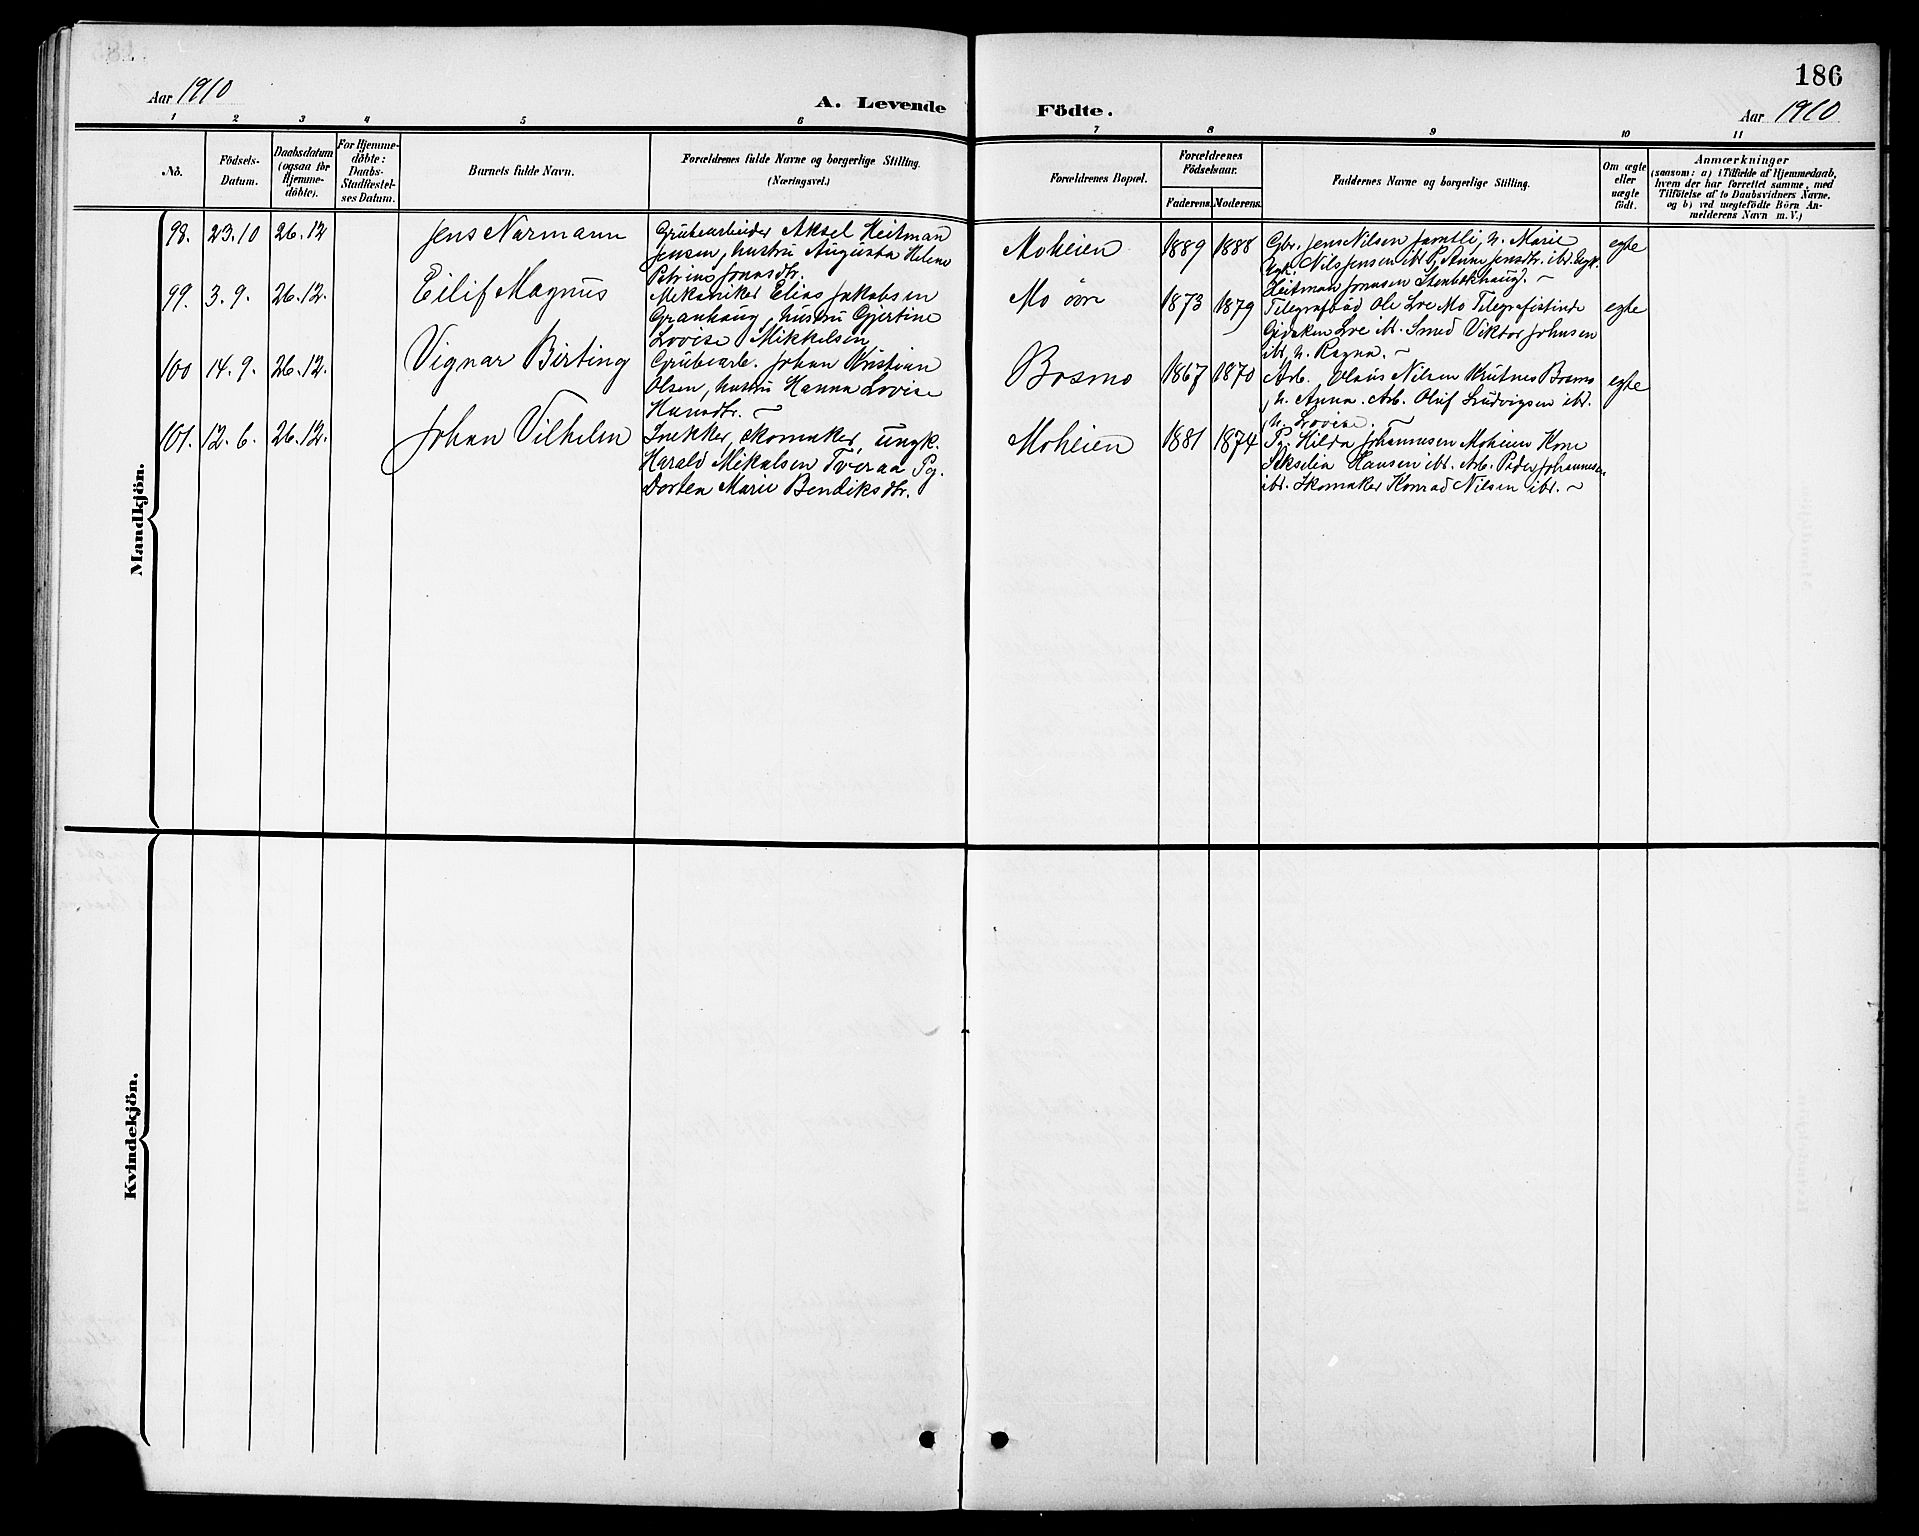 186
Aar 1910
A. Levende Födte.
Aar 1910
1 2 3 4 5 6 7 8 9 10 11
No.
Födsels-
Datum.
Daabsdatum
(ogsaa for
Hjemme-
döbte).
For Hjemme-
döbte:
Daabs-
Stadfestel-
ses Datum.
Barnets fulde Navn.
Forældrenes fulde Navne og borgerlige Stilling.
(Næringsvei.)
Forældrenes Bopæl.
Forældrenes
Födselsaar.
Faderens. Moderens.
Faddernes Navne og borgerlige Stilling.
Om ægte
eller
uægte
födt.
Anmærkninger
(saasom: a) i Tilfælde af Hjemmedaab,
hvem der har forrettet samme, med
Tilföielse af to Daabsvidners Navne.
og b) ved uegtefödte Börn An-
melderens Navn m. V.)
Mandkjön.
98. 23.10 26.12 Jens Normann
Grubearbeider Aksel Heitman
Jensen, hustru Augusta Helene
Petrine Jonasdtr.
Moheien 1889 1888
Gbr. Jens Nilsen Jamtli, h. Marie
Ugk. Nils Jensen ibt. Pg. Anne Jensdtr. ibt. Ugk.
Heitman Jonasen Stenbekhaug. ~
egte
99. 3.9. 26.12. Eilif Magnus
Mekaniker Elias Jakobsen
Granhaug, hustru Gjertine
Lovise Mikkelsen
Mo øvre 1873 1879
Telegrafbud Ole Lve Mo Telegrafistinde
Gidsken Lve ibt. Smed Viktor Johnsen
ibt, h. Ragna. ~
egte
100 14.9. 26.12. Vignar Birting
Grubearb. Johan Kristian
Olsen, hustru Hanna Lovise
Hansdtr. ~
Bosmo 1867 1870
Arb. Olaus Nilsen Krutnes Bosmo
, h. Anna. Arb. Oluf Ludvigsen ibt.
h. Lovise. ~
egte
101. 12.6. 26.12. Johan Vilhelm
Snekker, skomaker, ungk.
Harald Mikalsen Tveraa Pg.
Dorten Marie Bendiksdtr.
Moheien 1881 1874
Pg. Hilda Johannesen Moheien Kone
Hansen ibt. Arb. Peder Johannesen
ibt. Skomaker Konrad Nilsen ibt. ~
Kvindekjön.